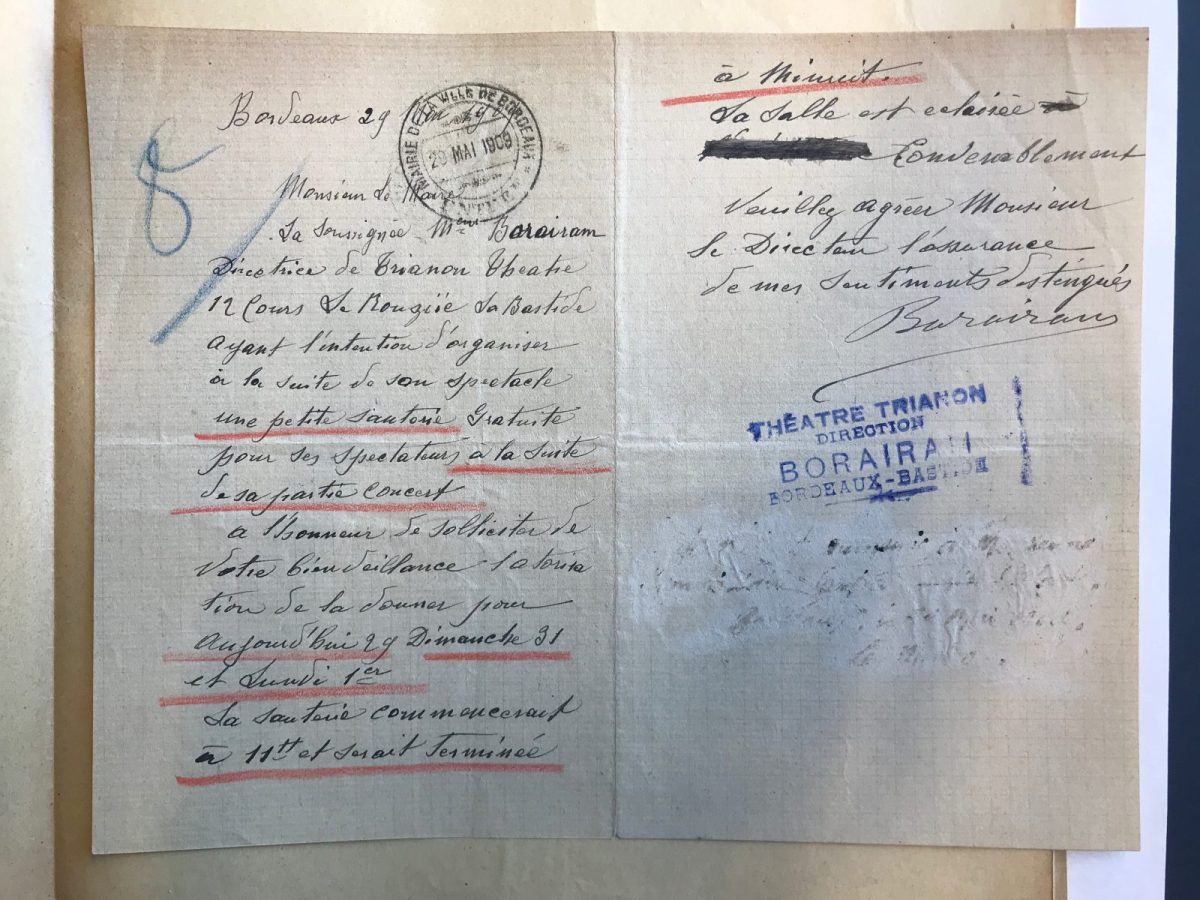 8
Bordeaux 29
MAIRIE DE LA VILLE DE BORDEAUX
29 MAI 1909
Monsieur Le Maire
La soussignée Me Borairam
Directrice de Trianon Theatre
12 Cours Le Rouzic La Bastide
ayant l'intention d'organiser
à la suite de son spectacle
une petite sauterie Gratuite
pour ses spectateurs à la suite
de sa partie concert
a l'honneur de solliciter de
votre bienveillance l'atorisa
tion de la donner pour
aujourd'hui 29 Dimanche 31
et Lundi 1er
La sauterie commencerait
à 11h et serait Terminée
à Minuit.
La Salle est eclaisée
Convenablement
Veuillez agréer Monsieur
le Directeur l'assurance
de mes sentiments distingués
Borairam
THÉATRE TRIANON
DIRECTION
BORAIRAM
BORDEAUX-BASTIDE